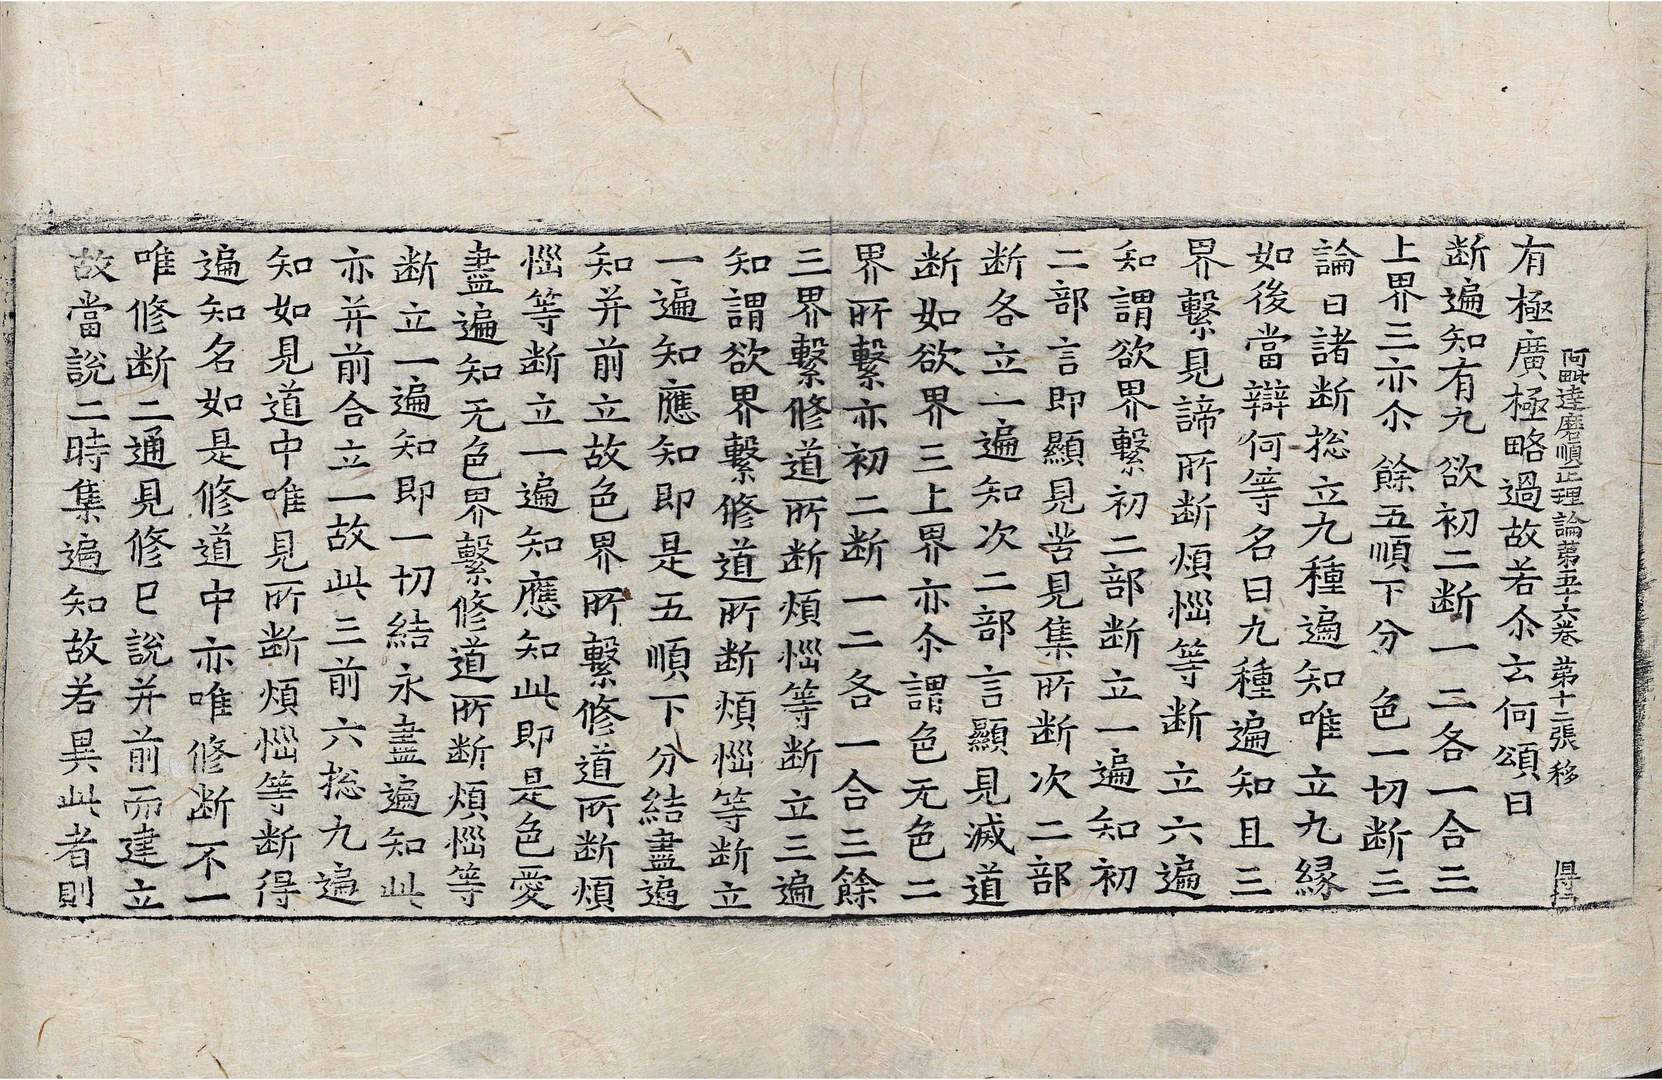 阿毗達磨順正理論第五十六卷 第十二張 移
有極廣極略過故若尒云何頌曰
断遍知有九欲初二断一二各一合三
上界三亦尒 餘五順下分 色一切断三
論曰諸断捴立九種遍知唯立九縁
如後當辯何等名曰九種遍知且三
界繫見諦所断煩惱等断立六遍
知謂欲界繫初二部断立一遍知初
二部言即顯見苦見集所断次二部
断各立一遍知次二部言顯見滅道
断如欲界三上界亦尒謂色无色二
界所繫亦初二断一二各一合三餘
三界繫修道所断煩惱等断立三遍
知謂欲界繫修道所断煩惱等断立
一遍知應知即是五順下分結盡遍
知并前立故色界所繫修道所断煩
惱等断立一遍知應知此即是色愛
盡遍知无色界繫修道所断煩惱等
断立一遍知即一切結永盡遍知此
亦并前合立一故此三前六捴九遍
知如見道中唯見所断煩惱等断得
遍知名如是修道中亦唯修断不一
唯修断二通見修已說并前而建立
故當說二時集遍知故若異此者則